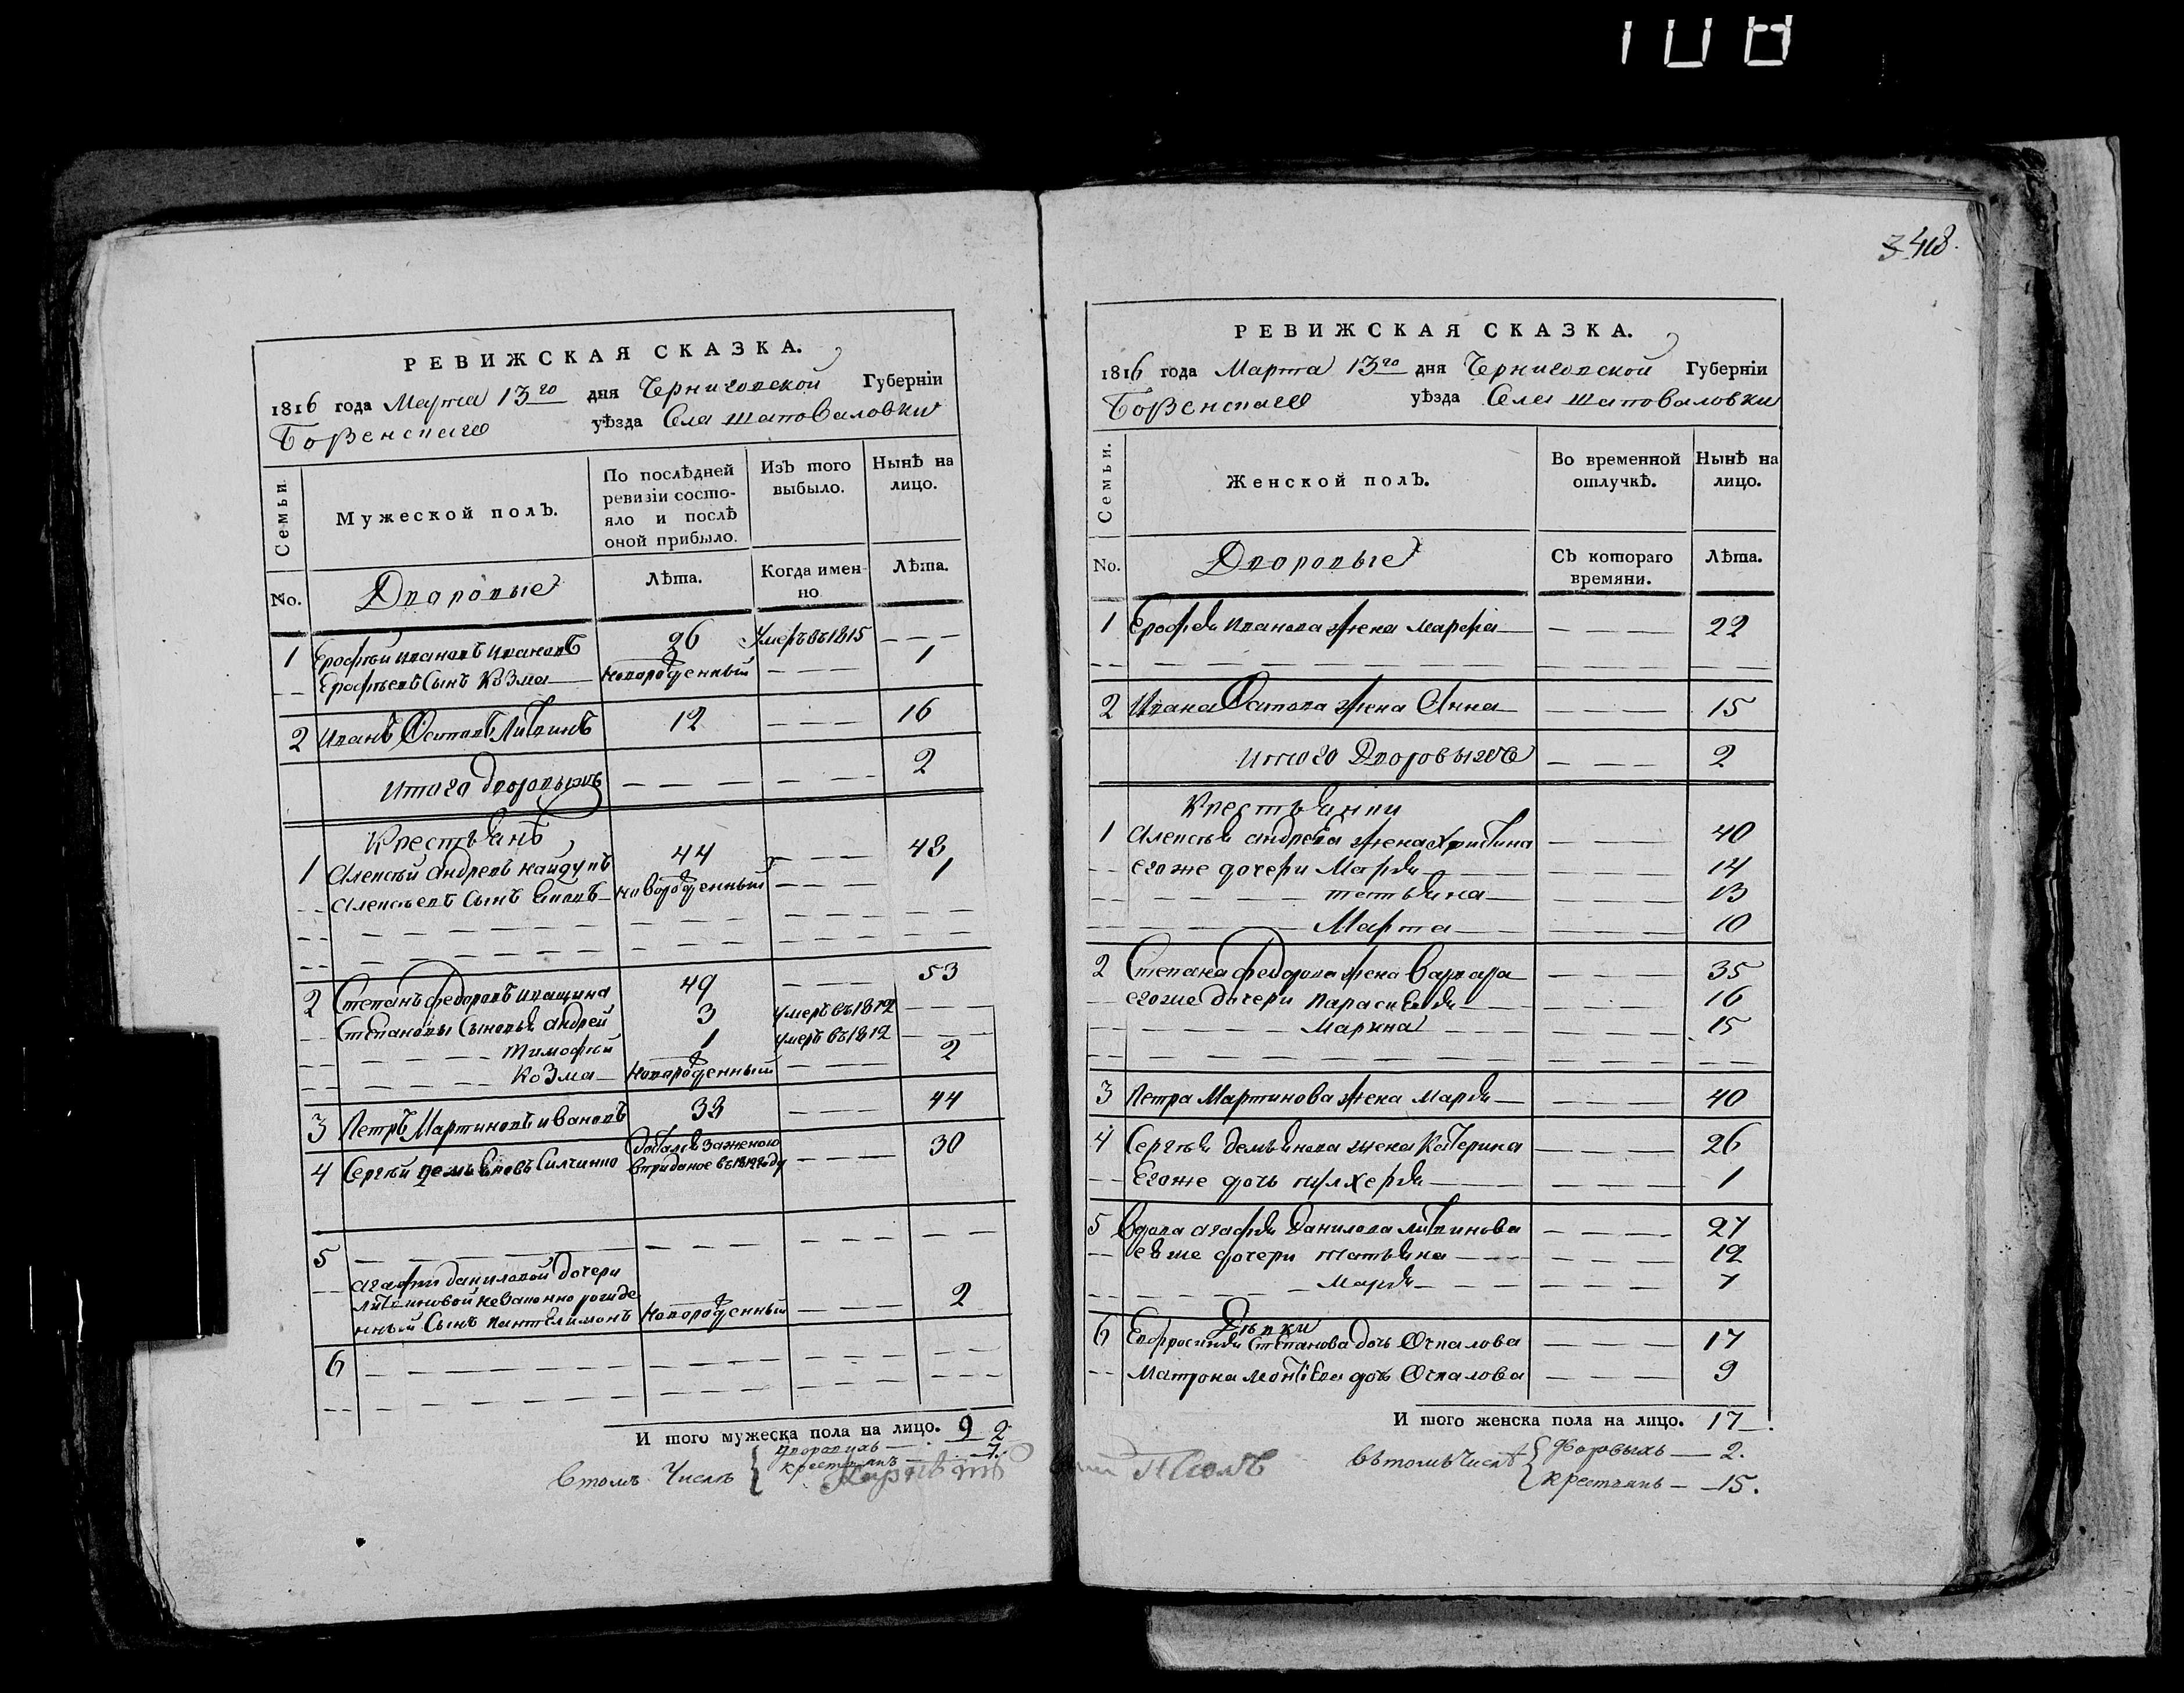 108
3 418.
РЕВИЖСКАЯ СКАЗКА.
1816 года Марта 13го дня Черниговской Губерніи
Борзенскаго уѣзда Села Шаповаловки
Семьи.
Мужеской полъ.
По послѣдней ревизіи состояло и послѣ оной прибыло.
Изъ того выбыло.
Нынѣ на лицо.
No.
Дворовые
Лѣта.
Когда именно
Лѣта.
1 Ерофѣй Ивановъ Ивановъ 26 Умеръ въ 1815 — — —
Ерофѣевъ Сынъ Козма новорожденный — — — 1
2 Иванъ Литвинъ 12 — — — 16
Итого дворовыхъ — — — — — — 2
Крестьянъ
1 Алексѣй Андреевъ 44 — — — 48
Алексѣевъ Сынъ новорожденный — — — 1
2 Степанъ Федоровъ Иващина 49 — — — 53
Степановы Сыновья Андрей 3 умеръ въ 1812 — — —
Тимофей 1 умеръ въ 1812 — — —
Козма новорожденный — — — 2
3 Петръ Мартиновъ Ивановъ — — — 44
4 Сергѣй Демьяновъ Силчинко за женою в приданое въ 1812 году — — — 30
5 — — — — — —
Агафіи Даниловой дочери
Литвиновой незаконно рожде
нный Сынъ Пантелимонъ новорожденный — — — 2
6 — — — — — —
И того мужеска пола на лицо. 9 2.
В томъ Числѣ дворовихъ —
крестьянъ — 7.
РЕВИЖСКАЯ СКАЗКА.
1816 года Марта 13го дня Черниговской Губерніи
Борзенскаго уѣзда Села Шаповаловки
Семьи.
Женской полъ.
Во временной отлучкѣ.
Нынѣ на лицо.
No.
Дворовые
Съ котораго времяни.
Лѣта.
1 Ерофея Иванова жена Марфа — — — 22
2 Ивана жена Анна — — — 15
Итого Дворовыхъ — — — 2
Крестьянки
1 Алексѣя Андреева жена Христина — — — 40
его же дочери Марья — — — 14
татьяна — — — 13
Марта — — — 10
2 Степана Федорова жена Варвара — — — 35
его же дочери Параскевия — — — 16
Марина — — — 15
3 Петра Мартинова жена Марья — — — 40
4 Сергѣя Демьянова жена Катерина — — — 26
Его же дочь пулхерия — — — 1
5 Вдова Агафия Данилова Литвинова — — — 27
ея же дочери татьяна — — — 12
Марья — — — 7
Дѣвки
6 Евфросиния Степанова дочь Очкалова — — — 17
Матрона Леонтіева дочь Очкалова — — — 9
И того женска пола на лицо. 17
въ томъ числѣ дворовыхъ — 2.
крестьянъ — 15.